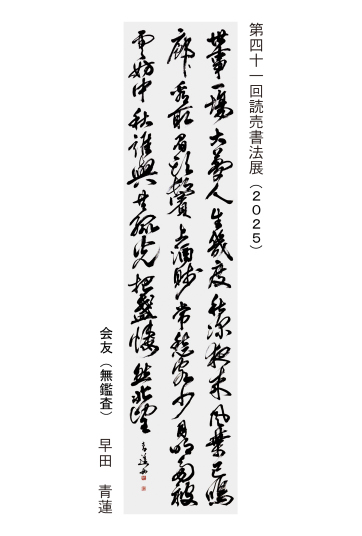 第四十一回読売書法展（2025）
世事一場大夢人生幾度秋涼夜来風葉已鳴
廊看取眉頭鬢上酒賤常愁客少月明多被
雲妨中秋誰與共孤光把盞悽然北望
会友（無鑑査） 早田 青蓮